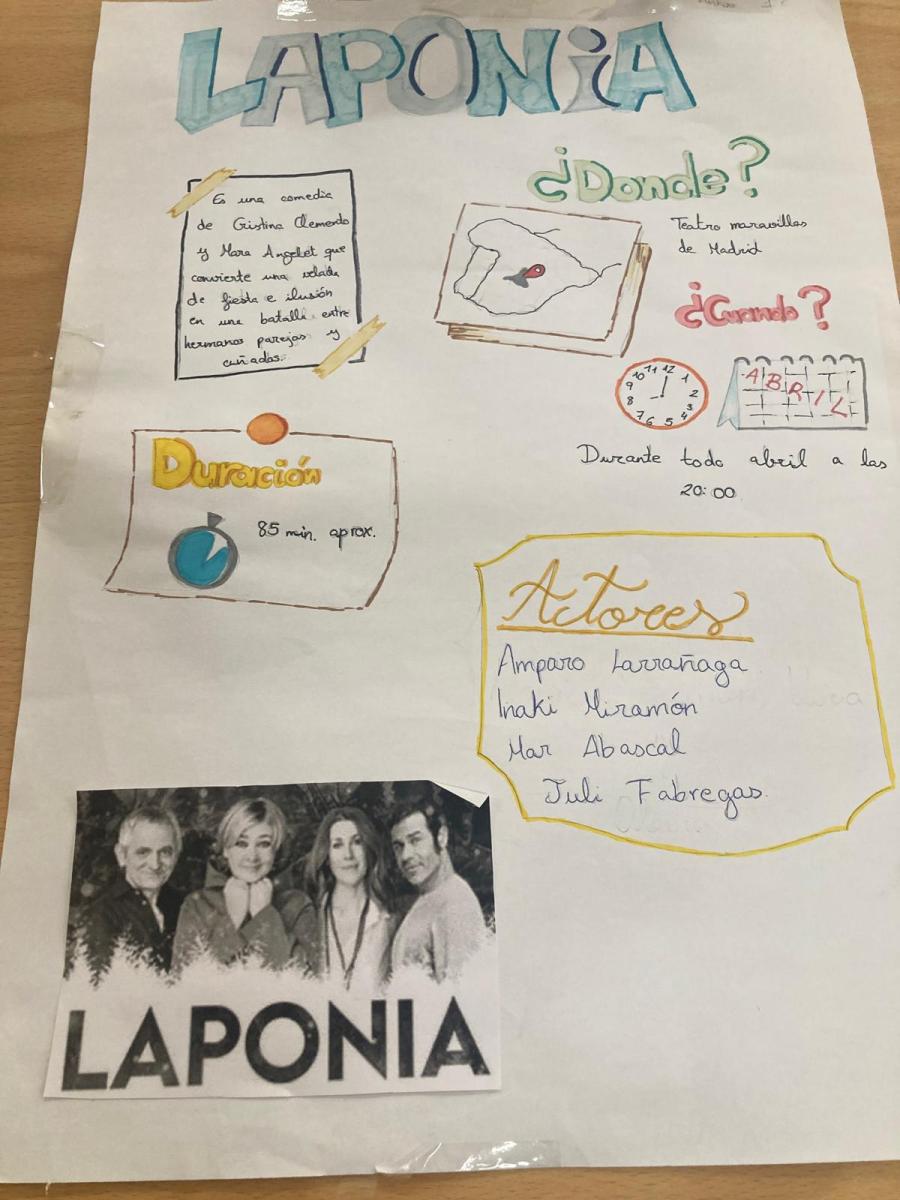 LAPONiA
Es una comedia
de Cristina Clemente
y Mara Angelet que
convierte una velada
de fiesta e ilusión
en una batalla entre
hermanos parejas y
cuñados.
¿Donde?
Teatro maravillas
de Madrid
¿Cuando?
10 11 12 1
9 2
8 3
7 6 5 4
ABRIL
Durante todo abril a las
20:00
Duración
85 min. aprox.
Actores
Amparo Larrañaga
Iñaki Miramón
Mar Abascal
Juli Fabregas.
LAPONIA